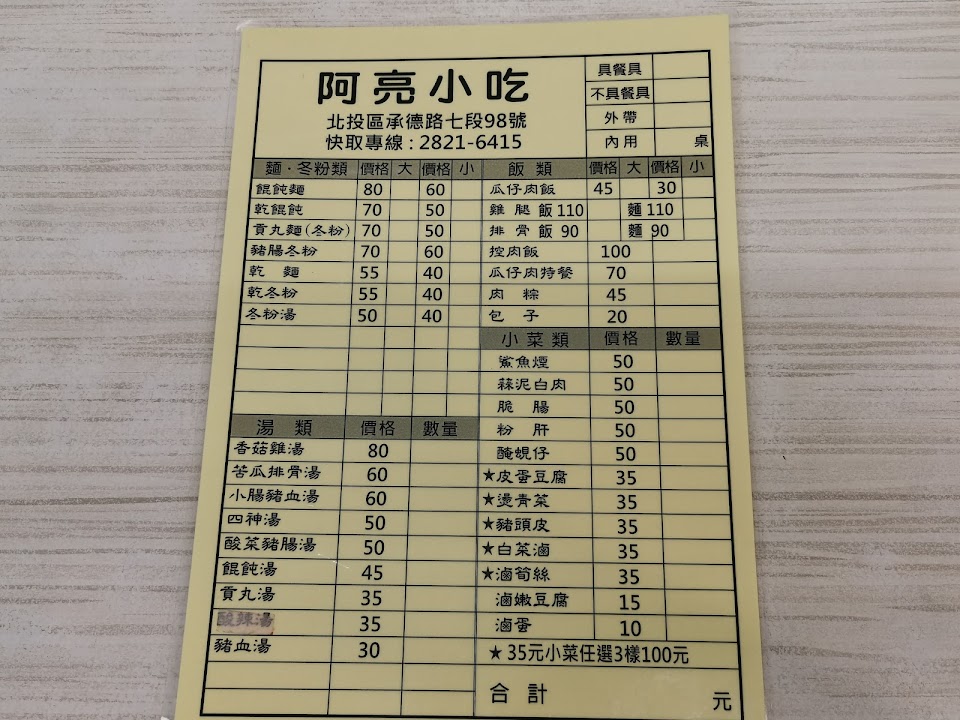 阿亮小吃
北投區承德路七段98號
快取專線：2821-6415
具餐具
不具餐具
外帶
內用 桌
麵．冬粉類 價格 大 價格 小
餛飩麵 80 60
乾餛飩 70 50
貢丸麵(冬粉) 70 50
豬腸冬粉 70 60
乾麵 55 40
乾冬粉 55 40
冬粉湯 50 40
湯類 價格 數量
香菇雞湯 80
苦瓜排骨湯 60
小腸豬血湯 60
四神湯 50
酸菜豬腸湯 50
餛飩湯 45
貢丸湯 35
酸辣湯 35
豬血湯 30
飯類 價格 大 價格 小
瓜仔肉飯 45 30
雞腿飯110 麵110
排骨飯90 麵90
控肉飯 100
瓜仔肉特餐 70
肉粽 45
包子 20
小菜類 價格 數量
鯊魚煙 50
蒜泥白肉 50
脆腸 50
粉肝 50
醃蜆仔 50
★皮蛋豆腐 35
★燙青菜 35
★豬頭皮 35
★白菜滷 35
★滷筍絲 35
滷嫩豆腐 15
滷蛋 10
★35元小菜任選3樣100元
合計 元